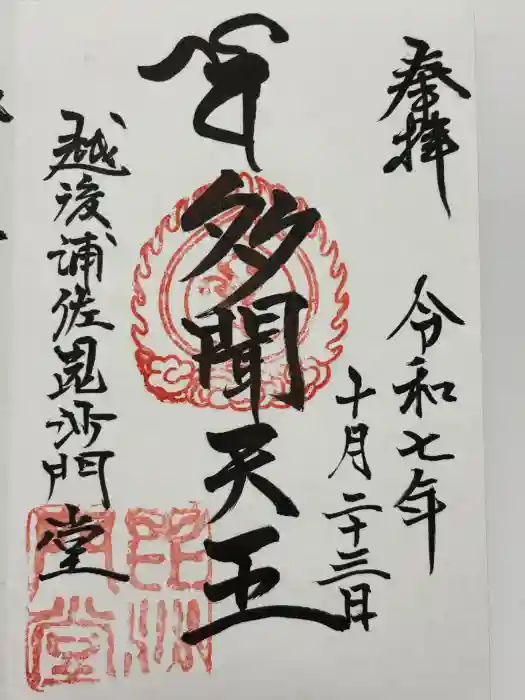 奉拝
令和七年
十月二十三日
多聞天王
越後浦佐毘沙門堂
毘沙門堂